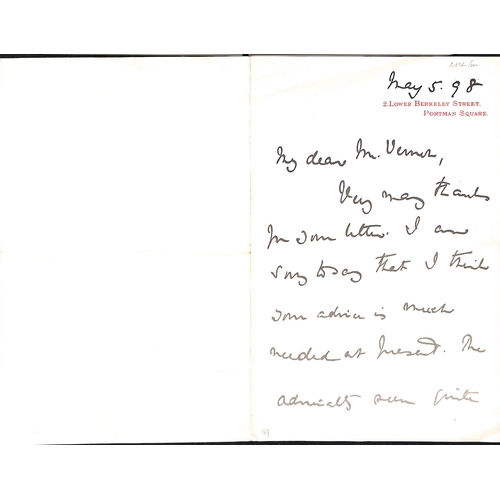 May 5. 98
2. Lower Berkeley Street.
Portman Square.
My dear Mr. Vernon,
Very many thanks
for your letter. I am
sorry to say that I think
your advice is much
needed at present. The
admiralty seem quite